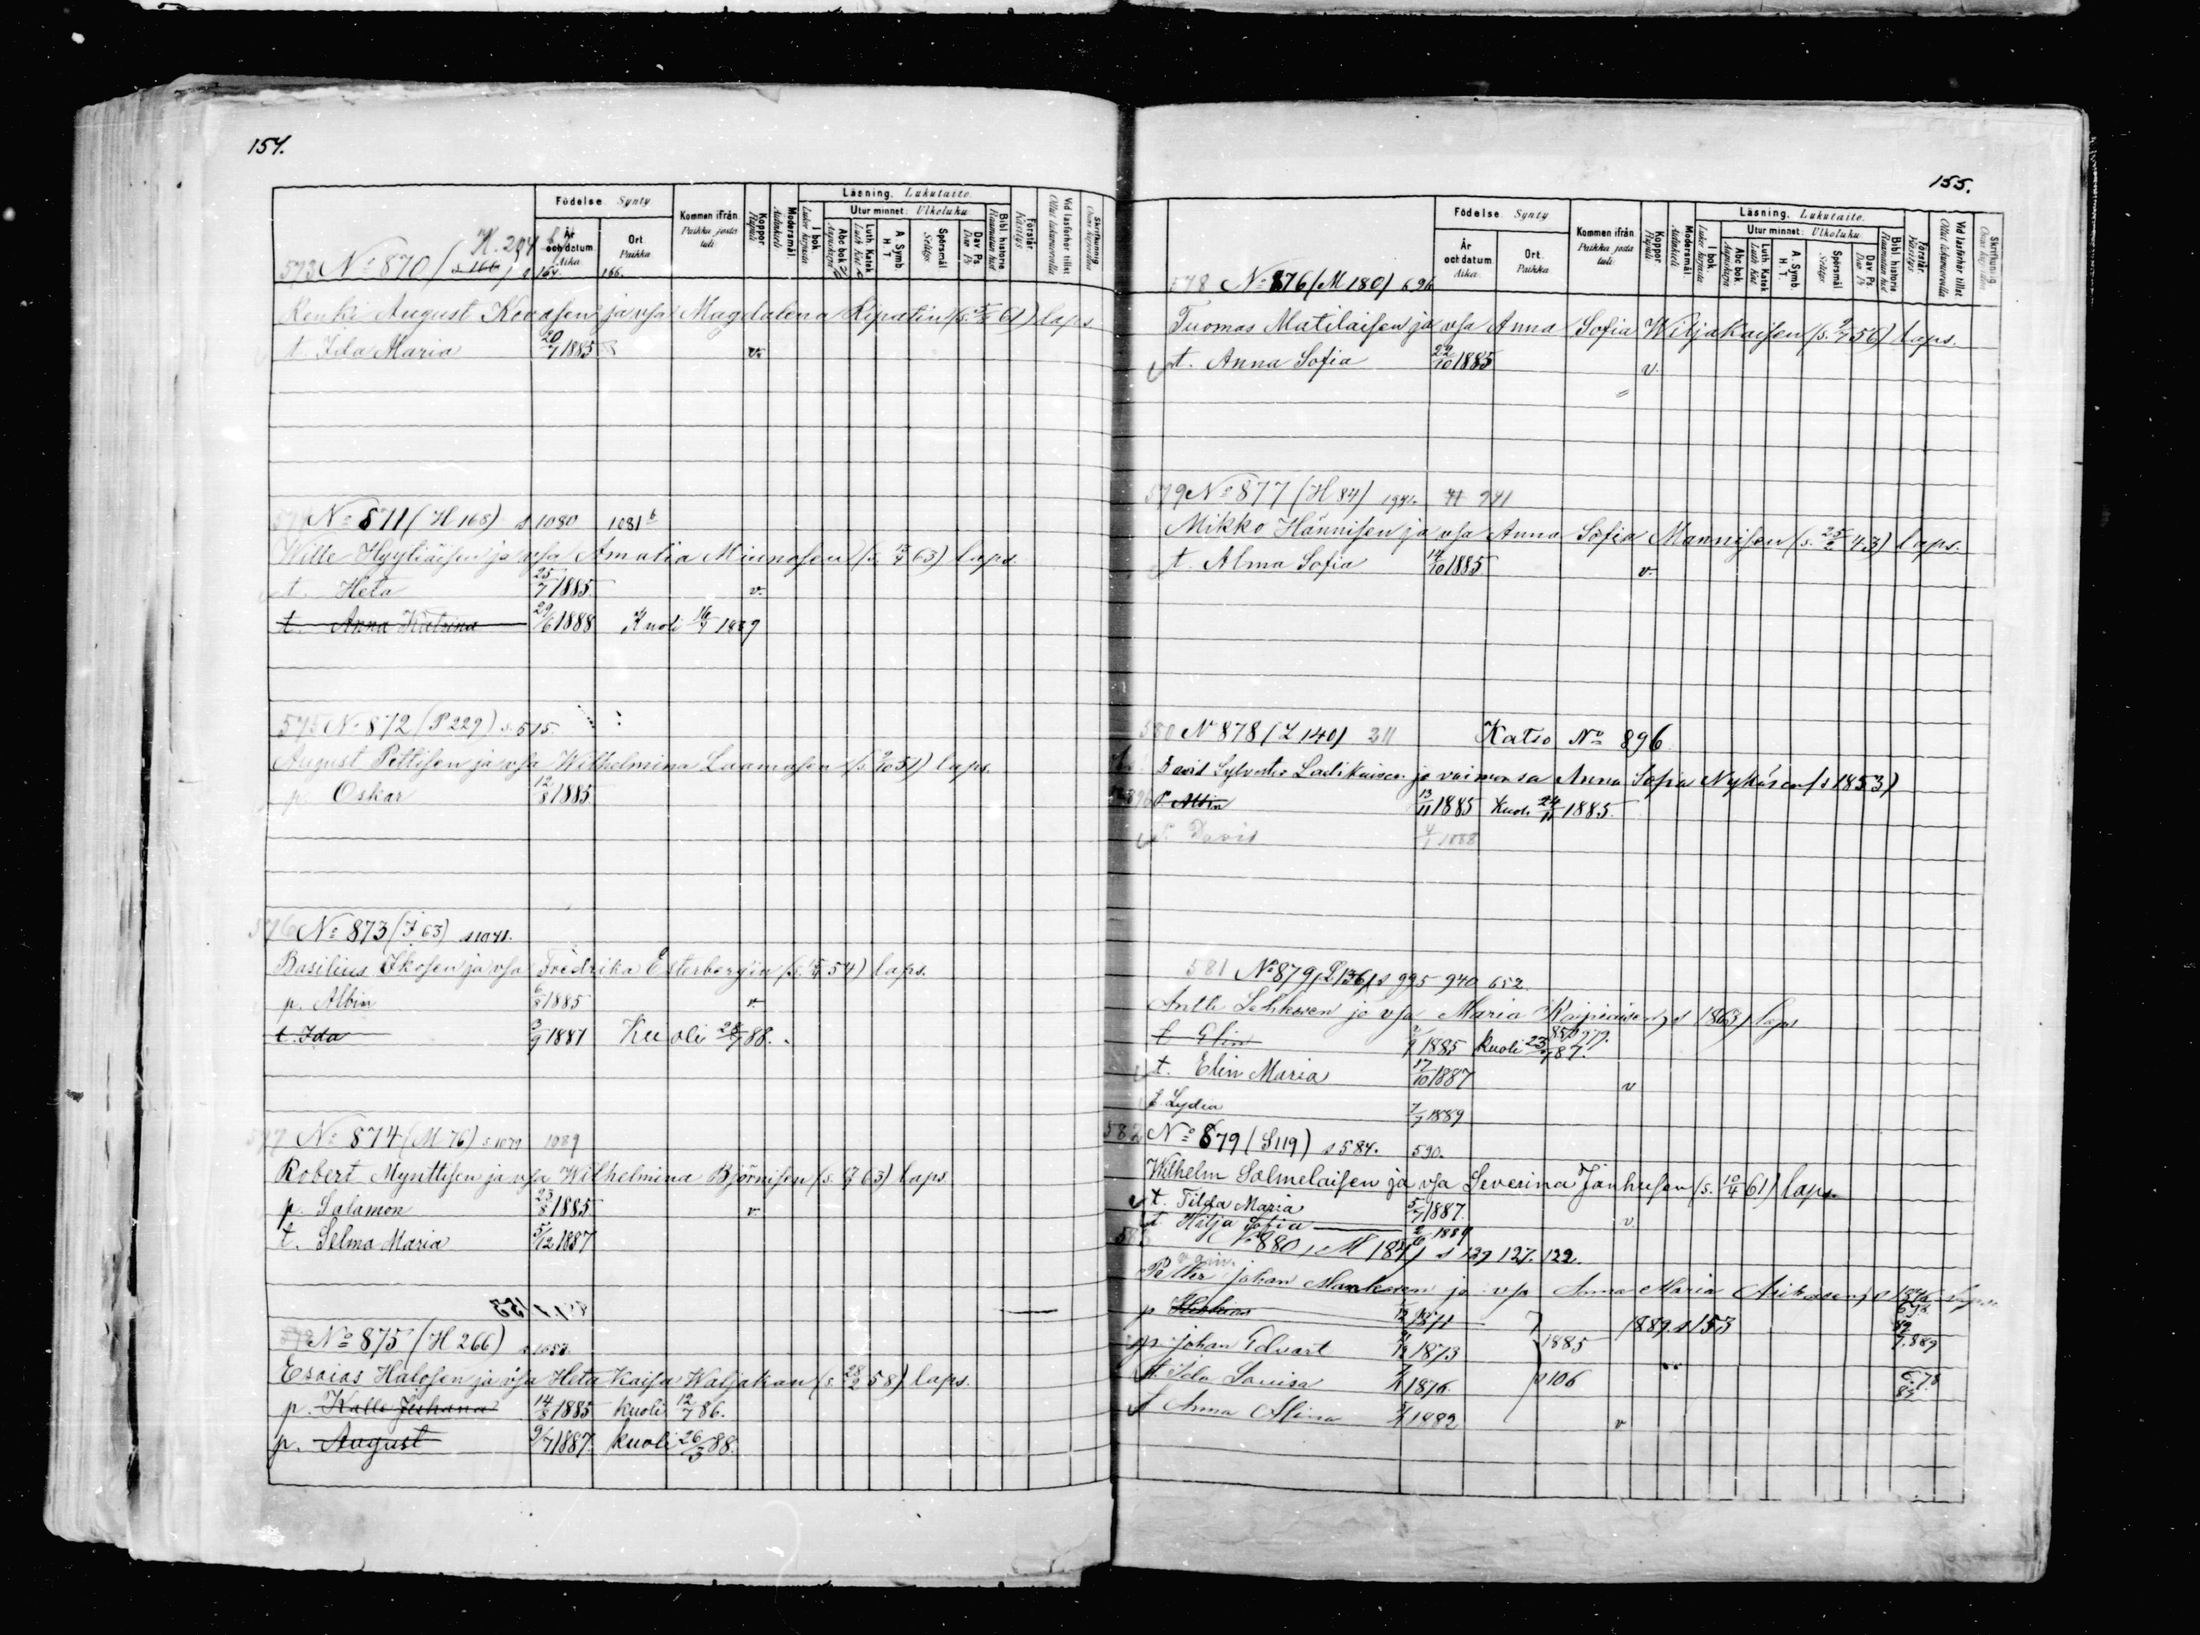 154.
Födelse. Synty
Kommen ifrån. Paikka josta tuli
Koppor. Rupuli
Modersmål. Äidinkieli
Läsning. Lukutaito.
I bok. Luku kirjasta
Utur minnet: Ulkoluku
Abc bok. Aapiskirja
Luth. Katek. Luth. Kat.
A. Symb. H. T.
Spörsmål Selitys
Dav. Ps Dav. Ps
Bibl. historie Raamatun hist
Förstår. Käsitys
År och datum. Aika.
Ort. Paikka
573 No 870 / H. 294
Renki August Kovasen ja vsa Magdalena Ripatin (s. 61) laps
t. Ida Maria 20/7 1885 v.
No 871 (H 168) s 1080 1081 b
Wille Hyytiäisen ja vsa Amalia Minnosen (s. 63) laps.
t. Heta 25/7 1885 v.
t. Anna Katrina 29/6 1888 Kuoli 16/7 1889
575 No 872 (P 229) s. 515
August Pettisen ja vsa Wilhelmina Laamasen (s. 51) laps.
p. Oskar 12/8 1885
576 No 873 (I 63) s 1041.
Basilius Ikosen ja vsa Fredrika Esterbergin (s. 54) laps.
p. Albin 6/8 1885 v
t. Ida 3/9 1881 Kuoli 28/7 88.
577 No 874 (M 76) s 1079 1089
Robert Mynttisen ja vsa Wilhelmina Björnisen (s. 63) laps
p. Salamon 23/8 1885 v
t. Selma Maria 5/12 1887
No 875 (H 266)
Esaias Halosen ja vsa Heta Kaisa Waljakan (s. 28/2 58) laps.
p. Kalle Juhana 14/8 1885 kuoli 12/7 86.
p. August 2/7 1887. kuoli 26/3 88.
155.
Födelse. Synty
Kommen ifrån. Paikka josta tuli
Koppor. Rupuli
Modersmål. Äidinkieli
Läsning. Lukutaito.
I bok. Luku kirjasta
Utur minnet: Ulkoluku
Abc bok. Aapiskirja
Luth. Katek. Luth. Kat.
A. Symb. H. T.
Spörsmål Selitys
Dav. Ps Dav. Ps
Bibl. historie Raamatun hist
Förstår. Käsitys
År och datum. Aika.
Ort. Paikka
578 No 876 (M 180) 696
Tuomas Matilaisen ja vsa Anna Sofia Wiljakaisen (s. 56) laps.
t. Anna Sofia 22/10 1885 v.
579 No 877 (H 84) 941
Mikko Hännisen ja vsa Anna Sofia Mannisen (s. 25/2 43) laps.
t. Alma Sofia 14/10 1885 v.
580 No 878 (L 140) 311 Katso No 896
David Sylvester Laulikaisen ja vaimonsa Anna Sofia Nykäsen (s 1853)
p. Albin 13/11 1885 Kuoli 24/11 1885.
p. David 1888
581 No 879 (L 136) s 995 940 652.
Antti Lehkosen ja vsa Maria (s 1863) laps
t Elin 1885 kuoli 23/7 87.
t. Elin Maria 17/10 1887 v
t Lydia 7/7 1889
582 No 879 (S 119) s 584. 590.
Wilhelm Salmelaisen ja vsa Severina Janhusen (s. 10/4 61) laps.
t. Tilda Maria 5/7 1887. v.
t Hilja Sofia 1889
No 880 (M 184) s 129 127. 122.
Petter Johan Mankosen ja vsa Anna Maria Asikasen
p 1871 1889 s 153
p Johan Edvart 1873 1885
t. Ida Lovisa 1876. s 106
t Anna Alina 1882 v